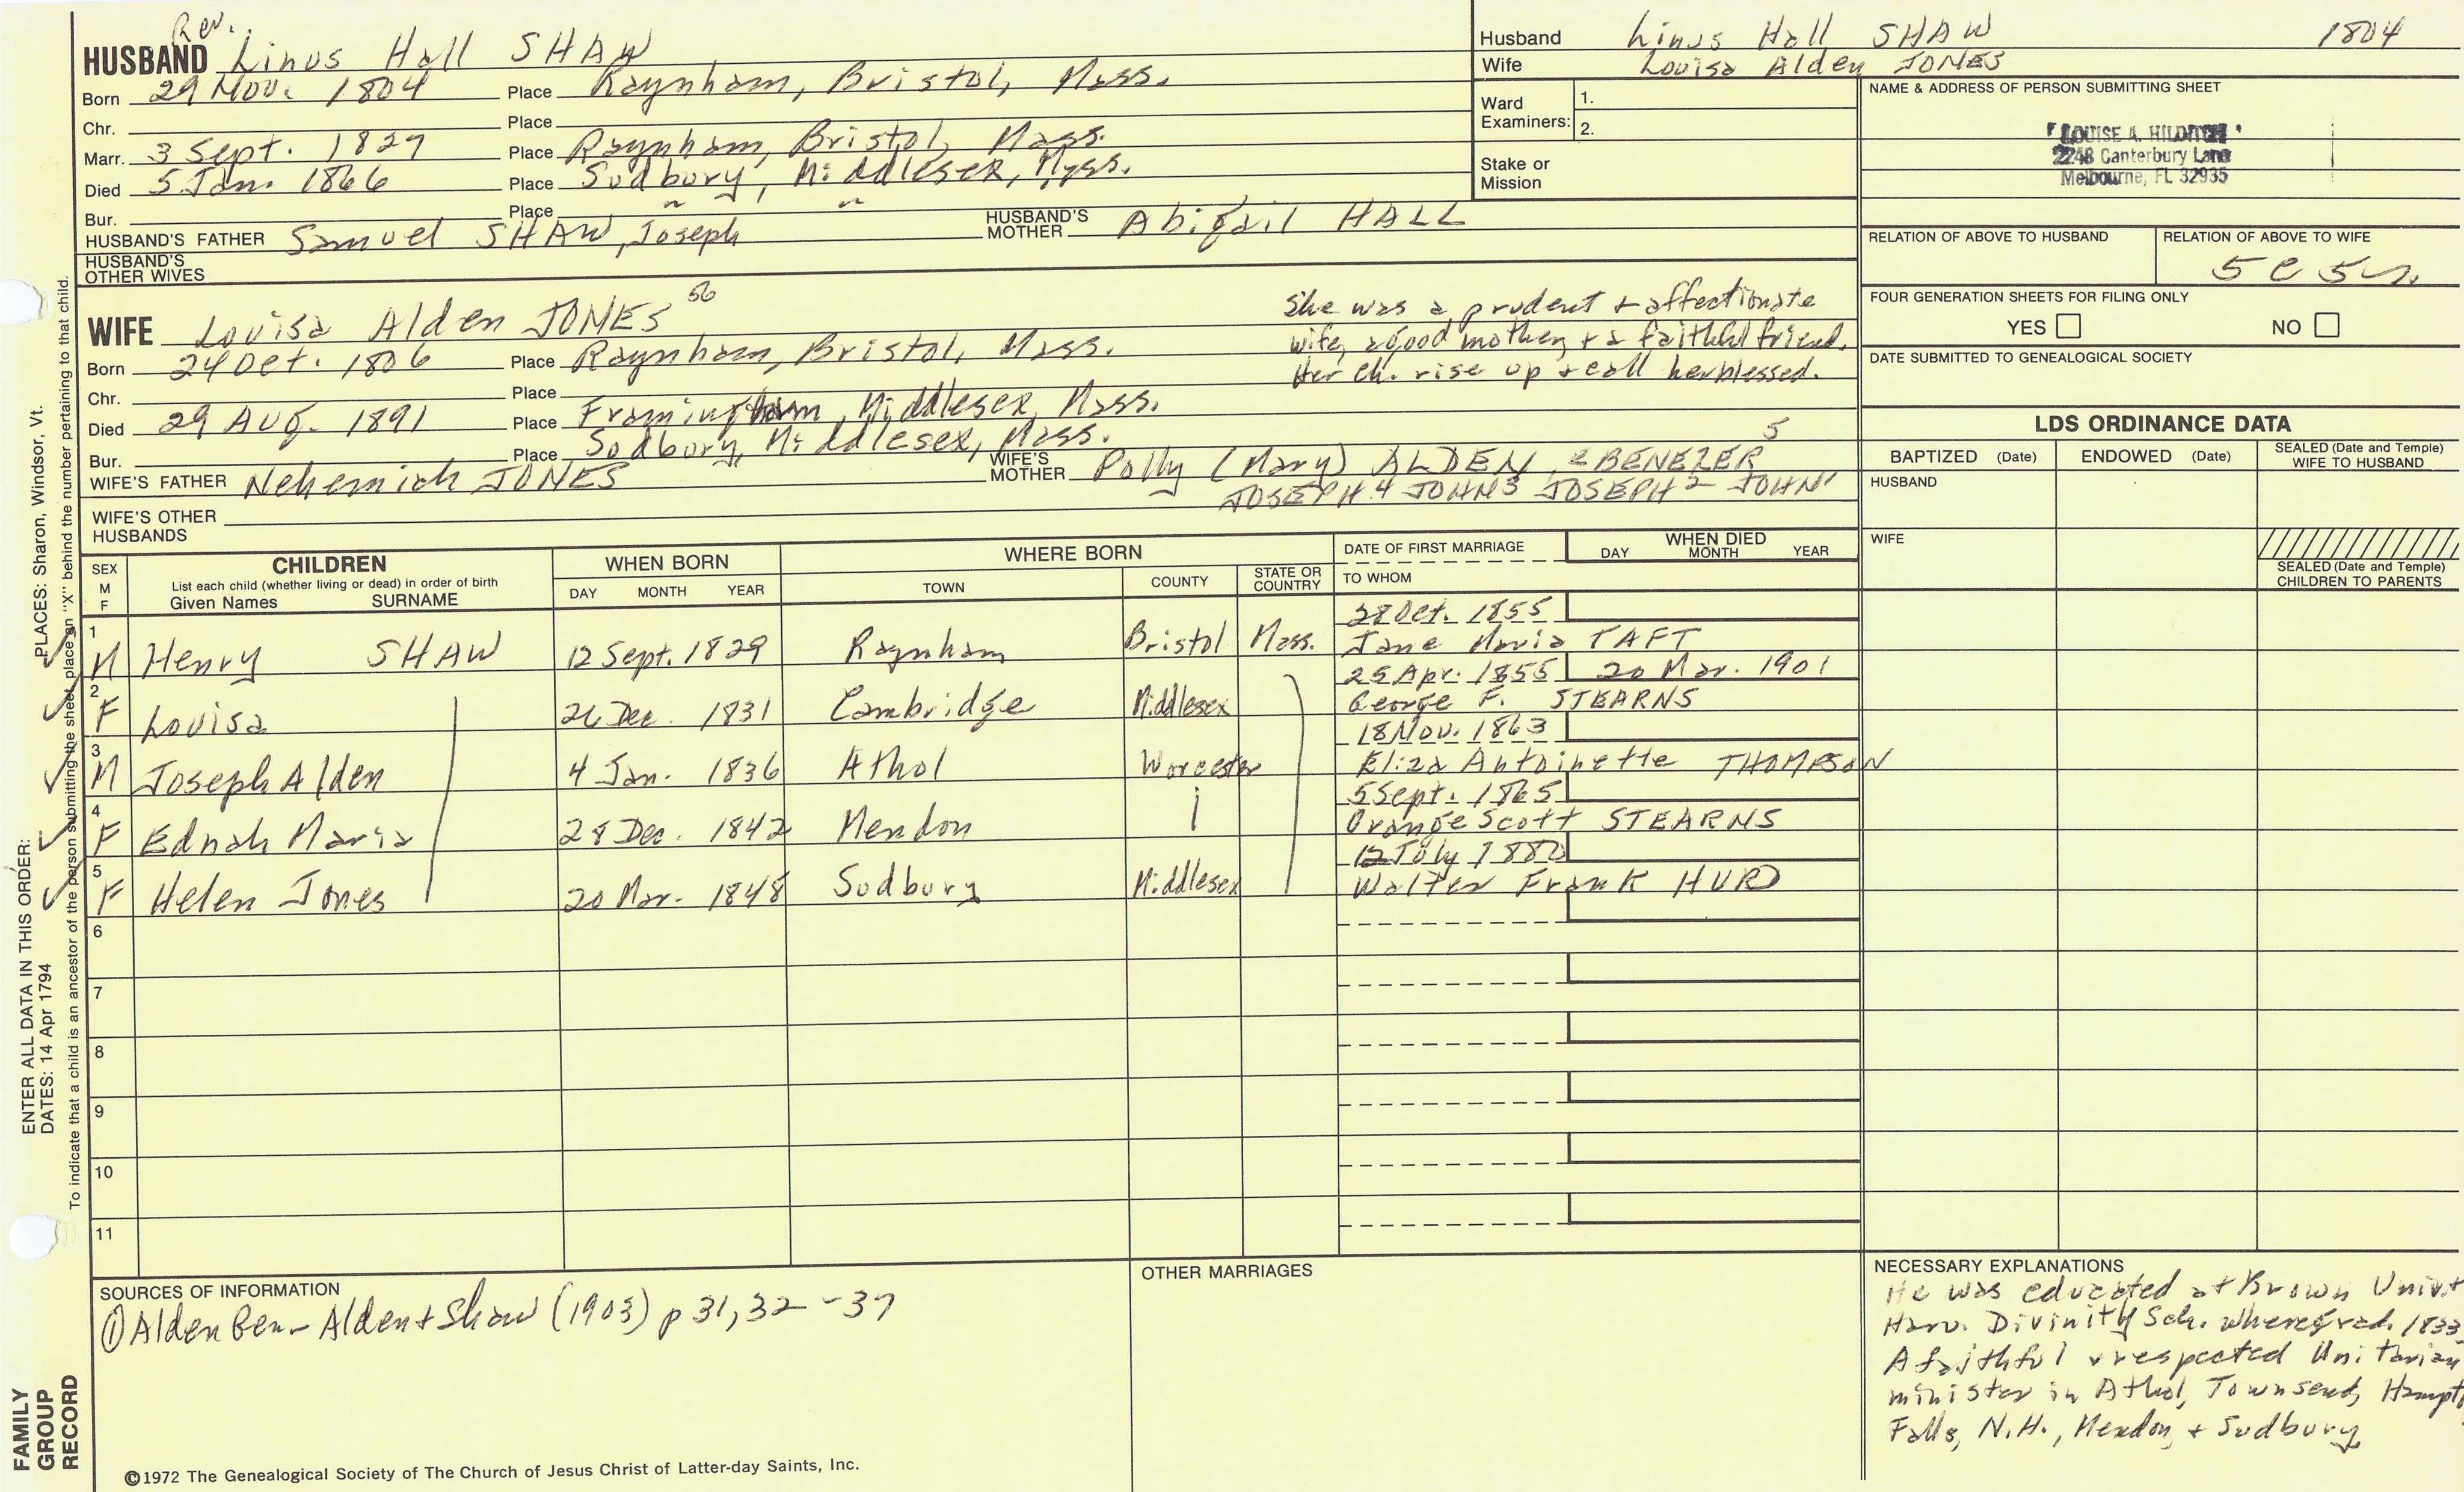 Rev.
HUSBAND Linus Hall SHAW
Born 29 Nov. 1804 Place Raynham, Bristol, Mass.
Chr. Place
Marr. 3 Sept. 1829 Place Raynham, Bristol, Mass.
Died 5 Jan. 1866 Place Sudbury, Middlesex, Mass.
Bur. Place " "
HUSBAND'S FATHER Samuel SHAW, Joseph HUSBAND'S MOTHER Abigail HALL
HUSBAND'S OTHER WIVES
WIFE Louisa Alden JONES 56
Born 24 Oct. 1806 Place Raynham, Bristol, Mass.
Chr. Place
Died 29 AUG. 1891 Place Framingham, Middlesex, Mass.
Bur. Place Sudbury, Middlesex, Mass.
WIFE'S FATHER Nehemiah JONES WIFE'S MOTHER Polly (Mary) ALDEN, EBENEZER 5
JOSEPH 4 JOHN 3 JOSEPH 2 JOHN 1
WIFE'S OTHER HUSBANDS
She was a prudent + affectionate
wife, a good mother, + a faithful friend.
Her ch. rise up + call her blessed.
Husband Linus Hall SHAW 1804
Wife Louisa Alden JONES
Ward Examiners: 1.
2.
Stake or Mission
NAME & ADDRESS OF PERSON SUBMITTING SHEET
LOUISE A. HILDITCH
2248 Canterbury Lane
Melbourne, FL 32935
RELATION OF ABOVE TO HUSBAND RELATION OF ABOVE TO WIFE
5 C 5 r.
FOUR GENERATION SHEETS FOR FILING ONLY
YES NO
DATE SUBMITTED TO GENEALOGICAL SOCIETY
LDS ORDINANCE DATA
BAPTIZED (Date) ENDOWED (Date) SEALED (Date and Temple) WIFE TO HUSBAND
HUSBAND
WIFE
SEALED (Date and Temple) CHILDREN TO PARENTS
SEX M F CHILDREN List each child (whether living or dead) in order of birth Given Names SURNAME WHEN BORN DAY MONTH YEAR WHERE BORN TOWN COUNTY STATE OR COUNTRY DATE OF FIRST MARRIAGE TO WHOM WHEN DIED DAY MONTH YEAR
28 Oct. 1855
1 M Henry SHAW 12 Sept. 1829 Raynham Bristol Mass. Jane Maria TAFT
25 Apr. 1855 20 Mar. 1901
2 F Louisa 26 Dec. 1831 Cambridge Middlesex George F. STEARNS
18 Nov. 1863
3 M Joseph Alden 4 Jan. 1836 Athol Worcester Eliza Antoinette THOMPSON
5 Sept. 1865
4 F Ednah Maria 28 Dec. 1842 Mendon Orange Scott STEARNS
12 July 1882
5 F Helen Jones 20 Mar. 1848 Sudbury Middlesex Walter Frank HURD
6
7
8
9
10
11
SOURCES OF INFORMATION
① Alden Gen - Alden + Shaw (1903) p 31, 32 - 37
OTHER MARRIAGES
NECESSARY EXPLANATIONS
He was educated at Brown Univ. +
Harv. Divinity Sch. where grad. 1833
A faithful + respected Unitarian
minister in Athol, Townsend, Hampt
Falls, N.H., Mendon, + Sudbury
©1972 The Genealogical Society of The Church of Jesus Christ of Latter-day Saints, Inc.
FAMILY GROUP RECORD
ENTER ALL DATA IN THIS ORDER:
DATES: 14 Apr 1794 PLACES: Sharon, Windsor, Vt.
To indicate that a child is an ancestor of the person submitting the sheet, place an "X" behind the number pertaining to that child.